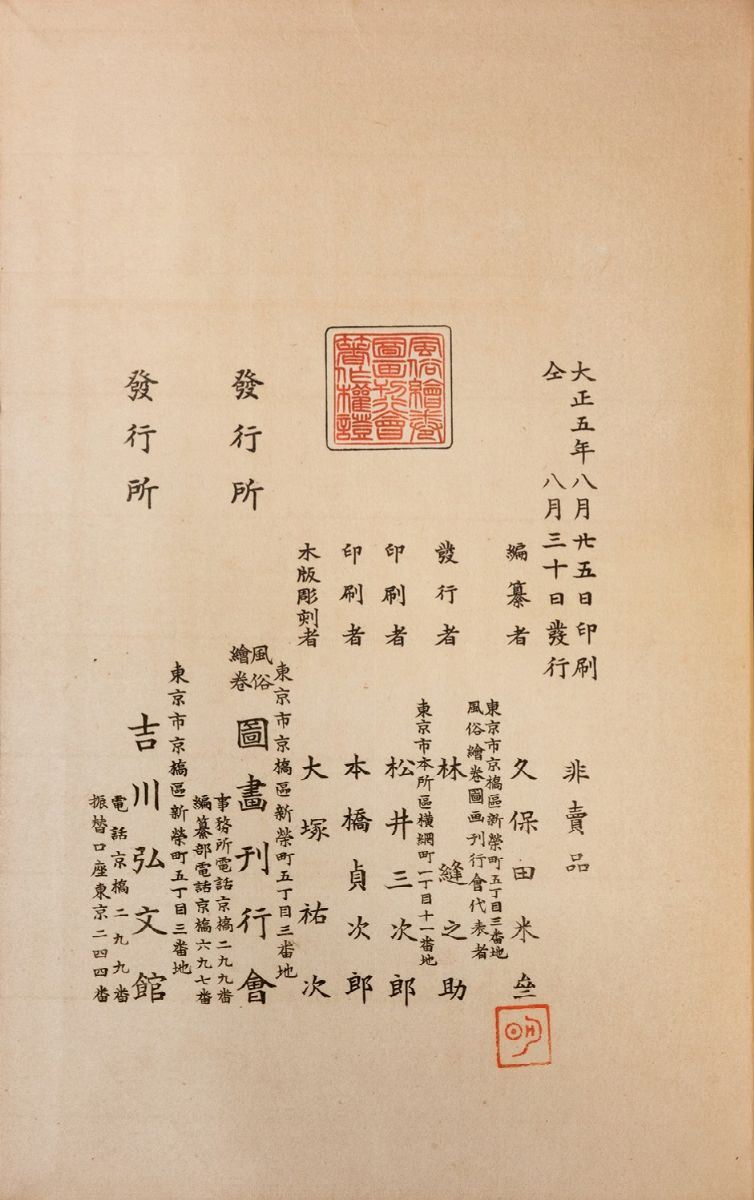 大正五年八月廿五日印刷
仝 八月三十日發行
非賣品
編纂者 久保田米斎
東京市京橋區新榮町五丁目三番地
風俗繪卷圖画刊行會代表者
發行者 林縫之助
東京市本所區横網町一丁目十一番地
印刷者 松井三次郎
印刷者 本橋貞次郎
木版彫刻者 大塚祐次
風俗繪卷
圖畫刊行會
著作權證
東京市京橋區新榮町五丁目三番地
發行所 風俗繪卷圖畫刊行會
事務所電話京橋二九九番
編纂部電話京橋六九七番
東京市京橋區新榮町五丁目三番地
發行所 吉川弘文館
電話京橋二九九番
振替口座東京二四四番